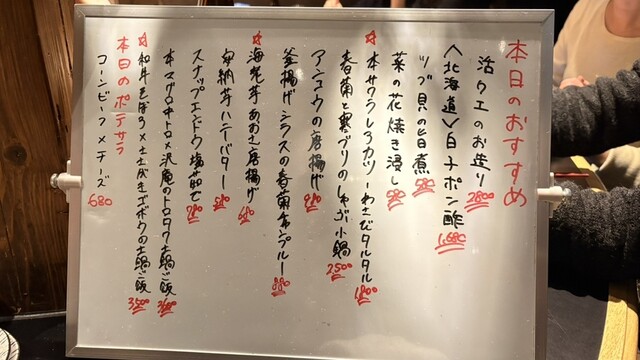 本日のおすすめ
活クエのお造り 2800
〈北海道〉白子ポン酢 1,680
ツブ貝の旨煮 580
菜の花焼き浸し
☆本サワラレアカツ-わさびタルタル 1800
春菊と寒ブリのしゃぶ小鍋 2500
アンコウの唐揚げ 980
釜揚げシラスの春菊チャンプルー 880
☆海老芋あおさ唐揚げ 680
安納芋ハニーバター 580
スナップエンドウ塩茹で
本マグロ中トロ×沢庵のトロタク土鍋ご飯
☆和牛そぼろ×土ごぼうの土鍋ご飯 3500
本日のポテサラ
コーンビーフ×チーズ 680